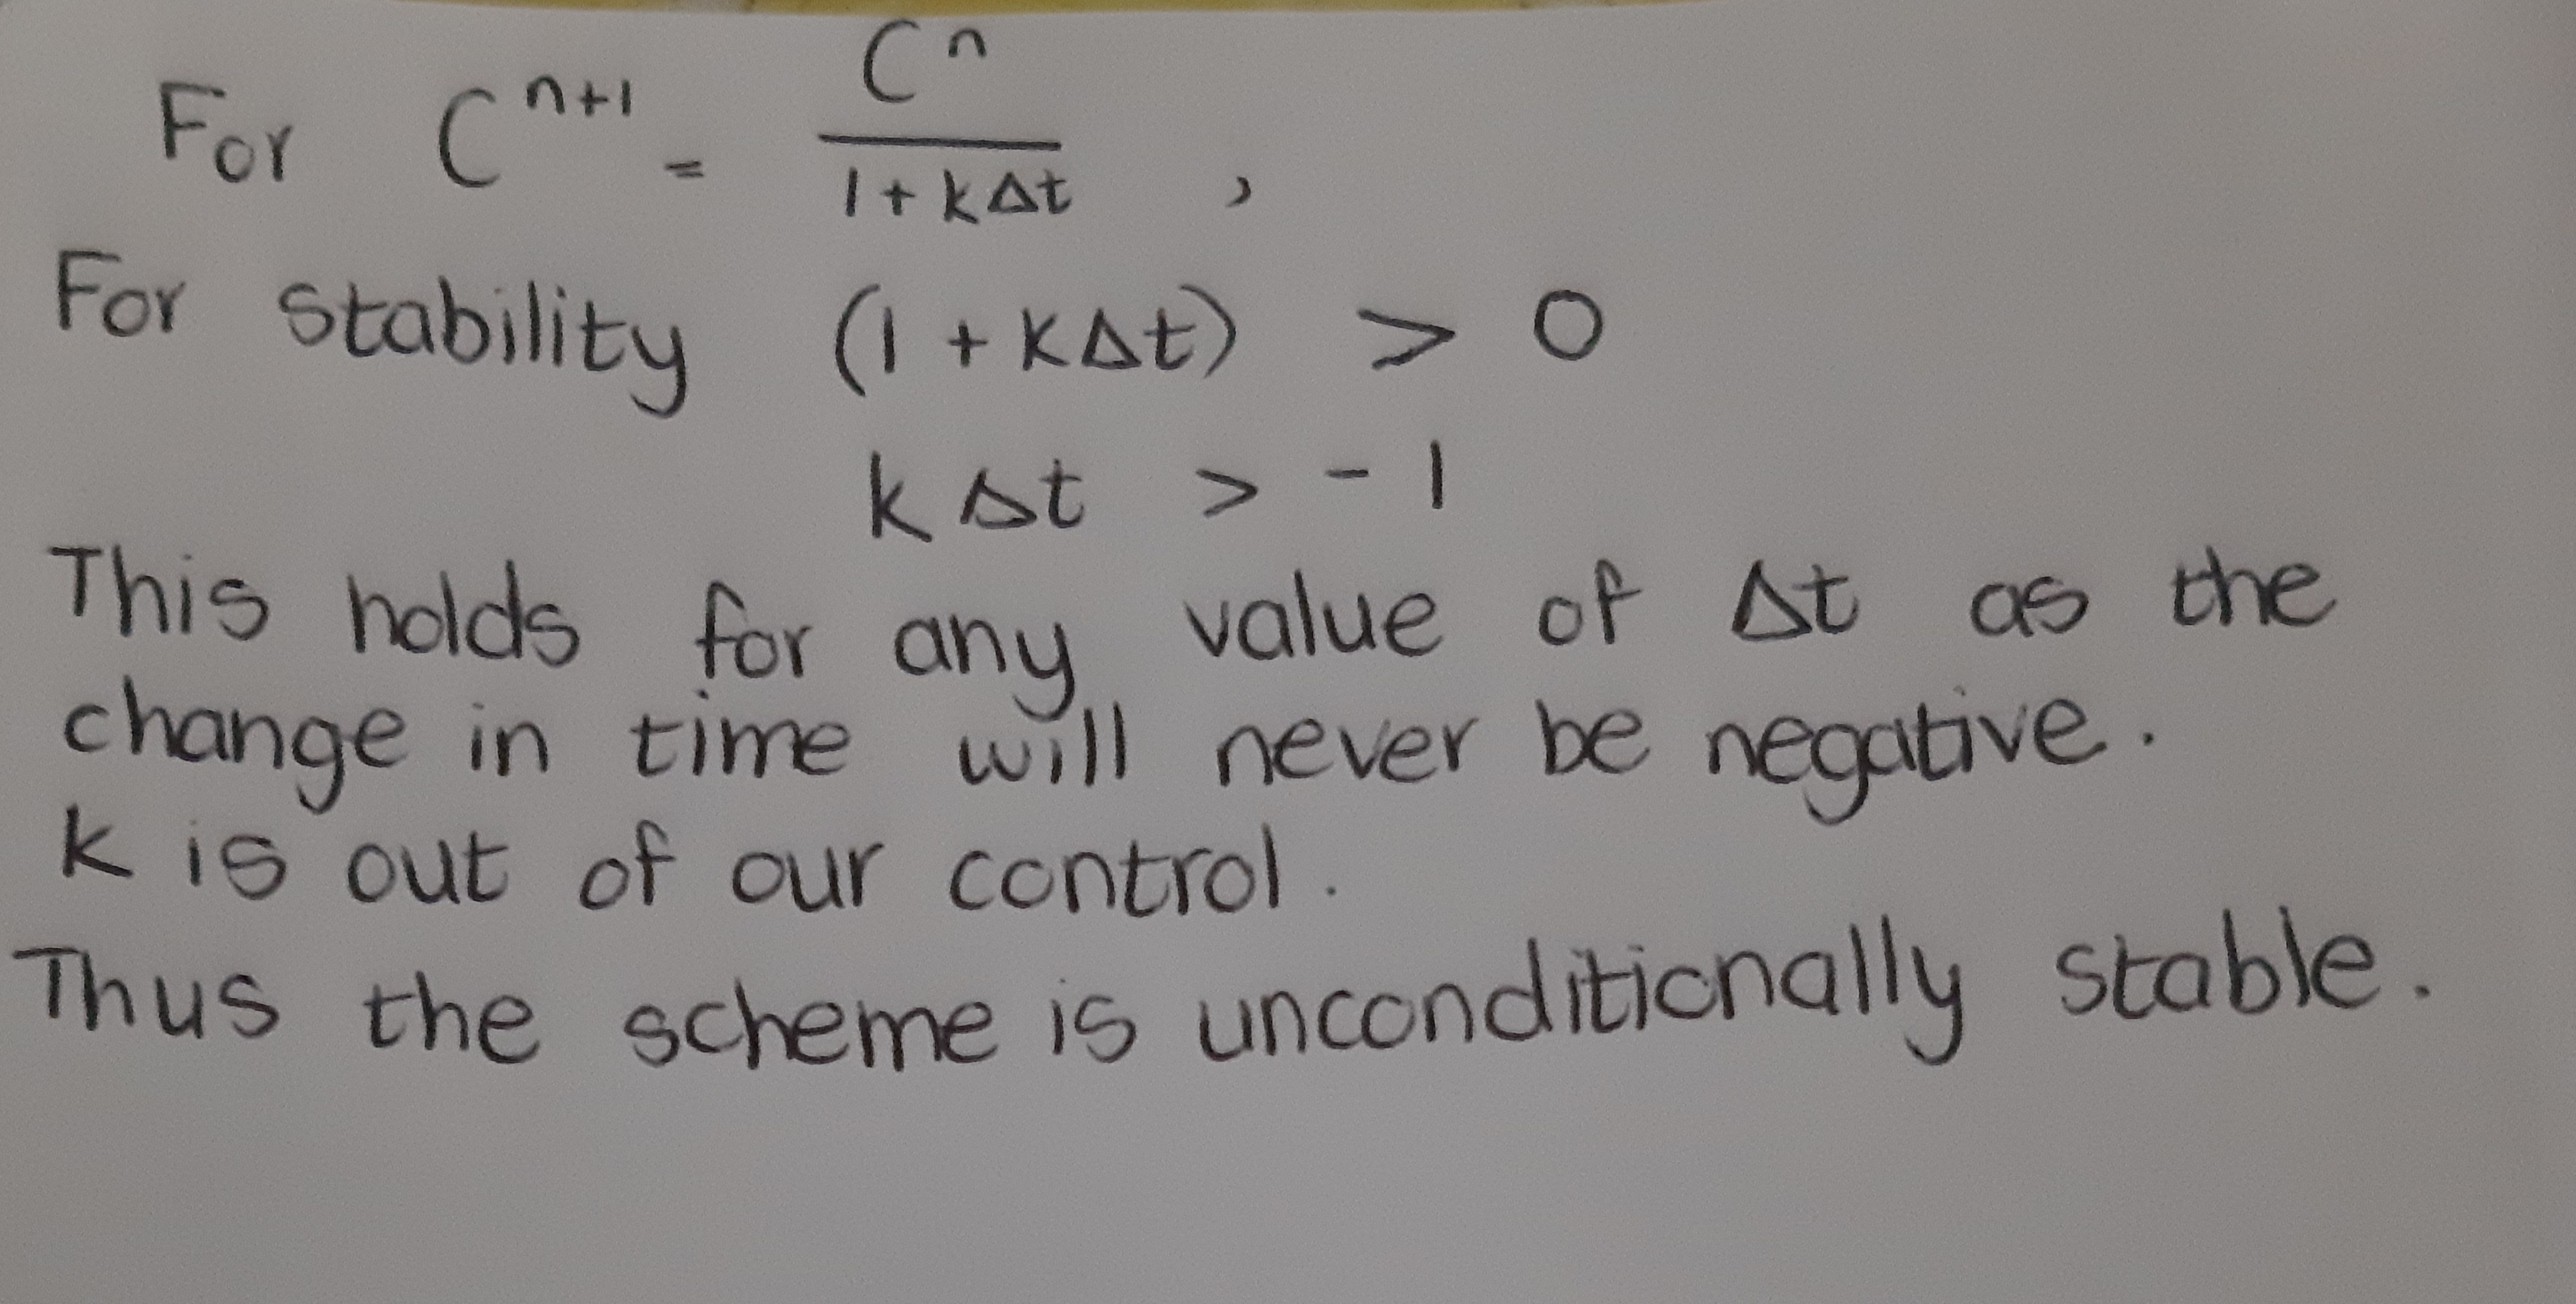 For C^{n+1} = \frac{C^n}{1 + k\Delta t} ,
For stability (1 + k\Delta t) > 0
k\Delta t > -1
This holds for any value of \Delta t as the
change in time will never be negative.
k is out of our control.
Thus the scheme is unconditionally stable.